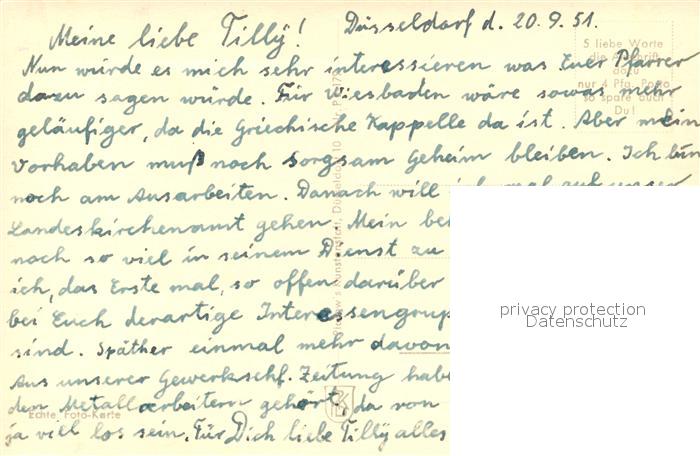 Meine liebe Tilly! Düsseldorf d. 20.9.51.
Nun würde es mich sehr interessieren was Euer Pfarrer
dazu sagen würde. Für Wiesbaden wäre sowas mehr
geläufiger, da die Griechische Kappelle da ist. Aber mein
Vorhaben muß noch sorgsam Geheim bleiben. Ich bin
noch am Ausarbeiten. Danach will ich mal auf unser
Landeskirchenamt gehen. Mein
noch so viel in seinem Dienst zu
ich, das Erste mal, so offen darüber
bei Euch derartige Interessengrup
sind. Späther einmal mehr davon
Aus unserer Gewerkschf. Zeitung habe
den Metallarbeitern gehört, da von
ja viel los sein. Für Dich liebe Tilly alles
5 liebe Worte
die Anschrift
dazu
nur 4 Pfg. Porto
so spare auch
Du!
Echte Foto-Karte
privacy protection
Datenschutz